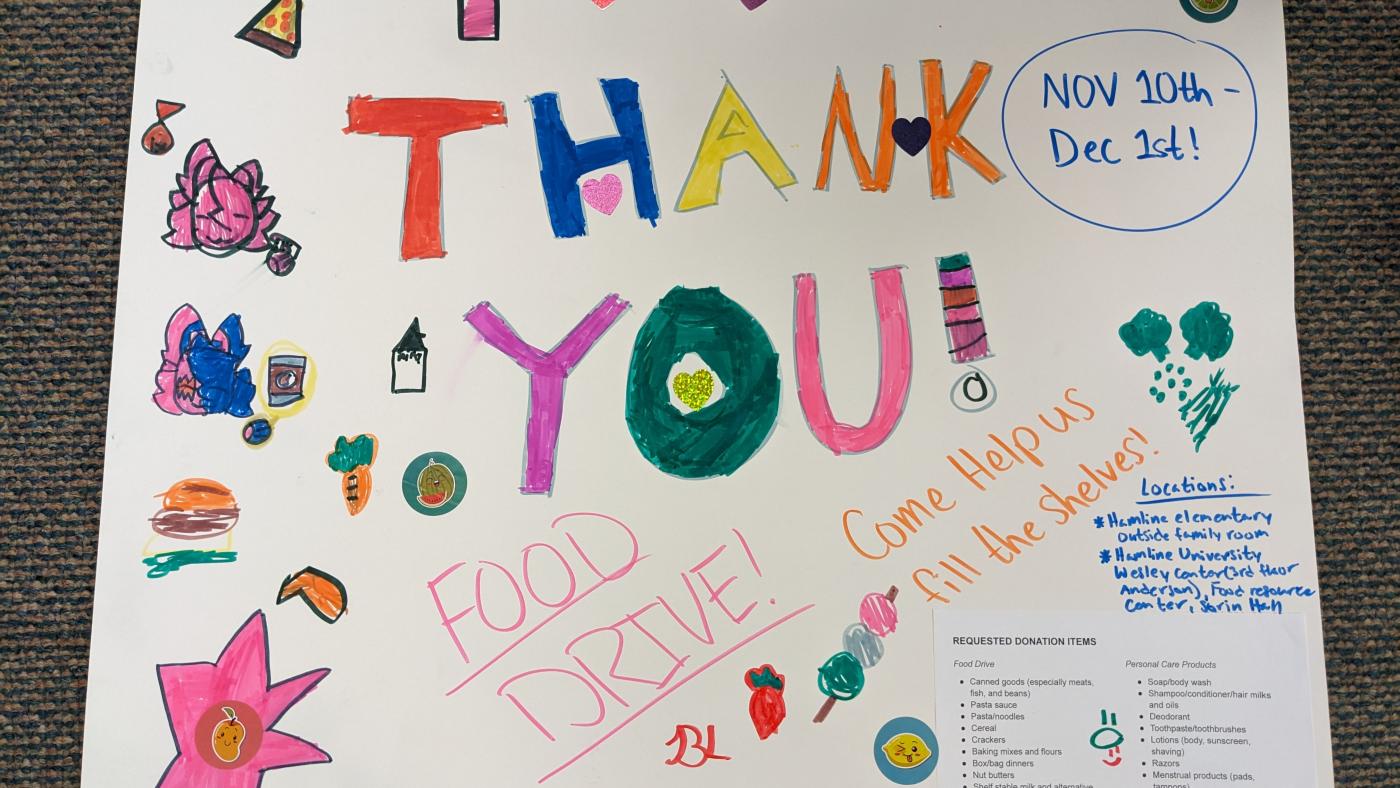 THANK
YOU!
NOV 10th -
Dec 1st!
Come Help us
fill the shelves!
FOOD
DRIVE!
BL
Locations:
* Hamline elementary
outside family room
* Hamline University
Wesley Center (3rd floor
Anderson), Food resource
Center, Sorin Hall
REQUESTED DONATION ITEMS
Food Drive
● Canned goods (especially meats,
fish, and beans)
● Pasta sauce
● Pasta/noodles
● Cereal
● Crackers
● Baking mixes and flours
● Box/bag dinners
● Nut butters
● Shelf stable milk and alternative
Personal Care Products
● Soap/body wash
● Shampoo/conditioner/hair milks
and oils
● Deodorant
● Toothpaste/toothbrushes
● Lotions (body, sunscreen,
shaving)
● Razors
● Menstrual products (pads,
tampons)